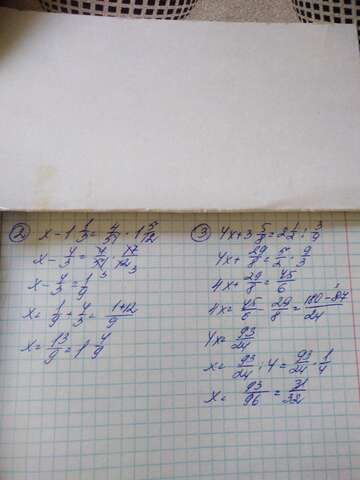 ② x - 1 1/3 = 4/51 · 1 5/12
x - 4/3 = 4/51 · 17/12
x - 4/3 = 1/9
x = 1/9 + 4/3 = 1+12/9
x = 13/9 = 1 4/9
③ 4x + 3 5/8 = 2 1/2 : 3/9
4x + 29/8 = 5/2 · 9/3
4x + 29/8 = 45/6
4x = 45/6 - 29/8 = 180-87/24
4x = 93/24
x = 93/24 : 4 = 93/24 · 1/4
x = 93/96 = 31/32